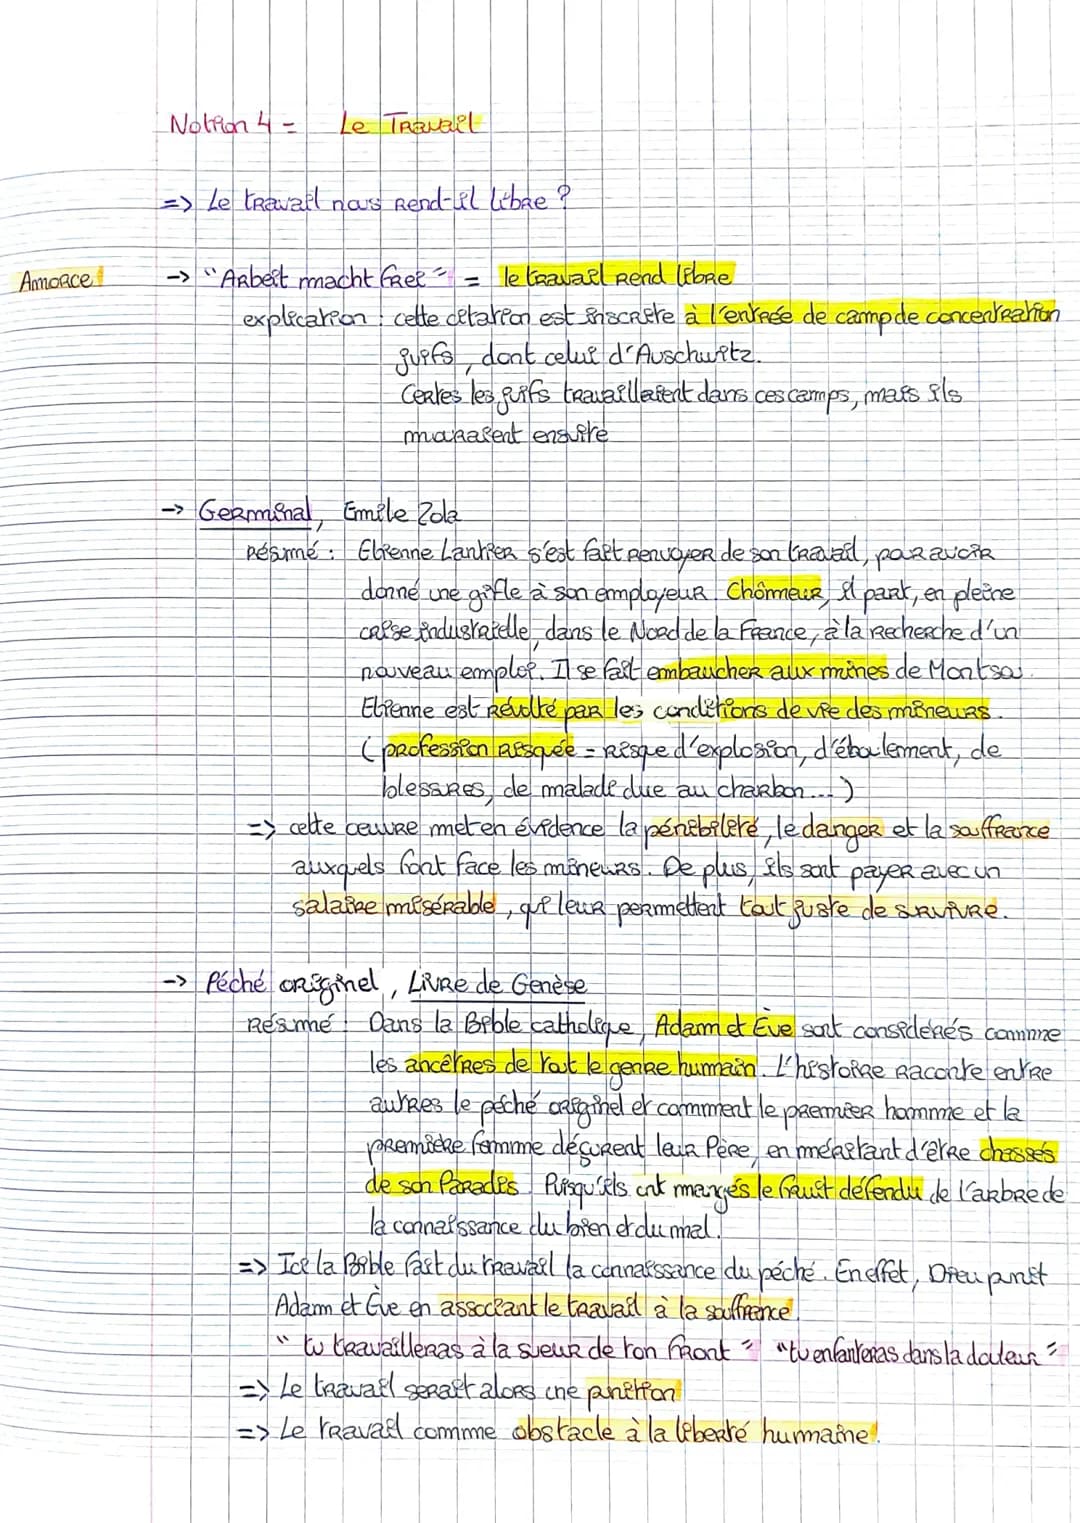 Notion 4 = Le Travail
=> Le travail nous rend-il libre ?
Amorce !
-> "Arbeit macht frei" = le travail rend libre
explication : cette citation est inscrite à l'entrée de camp de concentration
juifs, dont celui d'Auschwitz.
Certes les juifs travaillaient dans ces camps, mais ils
mouraient ensuite
-> Germinal, Emile Zola
Résumé : Etienne Lantier s'est fait renvoyer de son travail, pour avoir
donné une gifle à son employeur. Chômeur, il part, en pleine
crise industrielle, dans le Nord de la France, à la recherche d'un
nouveau emploi. Il se fait embaucher aux mines de Montsou.
Etienne est révolté par les conditions de vie des mineurs.
(profession risquée = risque d'explosion, d'éboulement, de
blessures, de malade due au charbon...)
=> cette oeuvre met en évidence la pénibilité, le danger et la souffrance
auxquels font face les mineurs. De plus, ils sont payer avec un
salaire misérable, qui leur permettent tout juste de survivre.
-> Péché originel, Livre de Genèse
Résumé : Dans la Bible catholique, Adam et Ève sont considérés comme
les ancêtres de tout le genre humain. L'histoire raconte entre
autres le péché originel et comment le premier homme et la
première femme déçurent leur Père, en méritant d'être chassés
de son Paradis. Puisqu'ils ont mangés le fruit défendu de l'arbre de
la connaissance du bien et du mal.
=> Ici la Bible fait du travail la connaissance du péché. En effet, Dieu punit
Adam et Ève en associant le travail à la souffrance.
"tu travailleras à la sueur de ton front" "tu enfanteras dans la douleur"
=> Le travail serait alors une punition
=> Le travail comme obstacle à la liberté humaine.